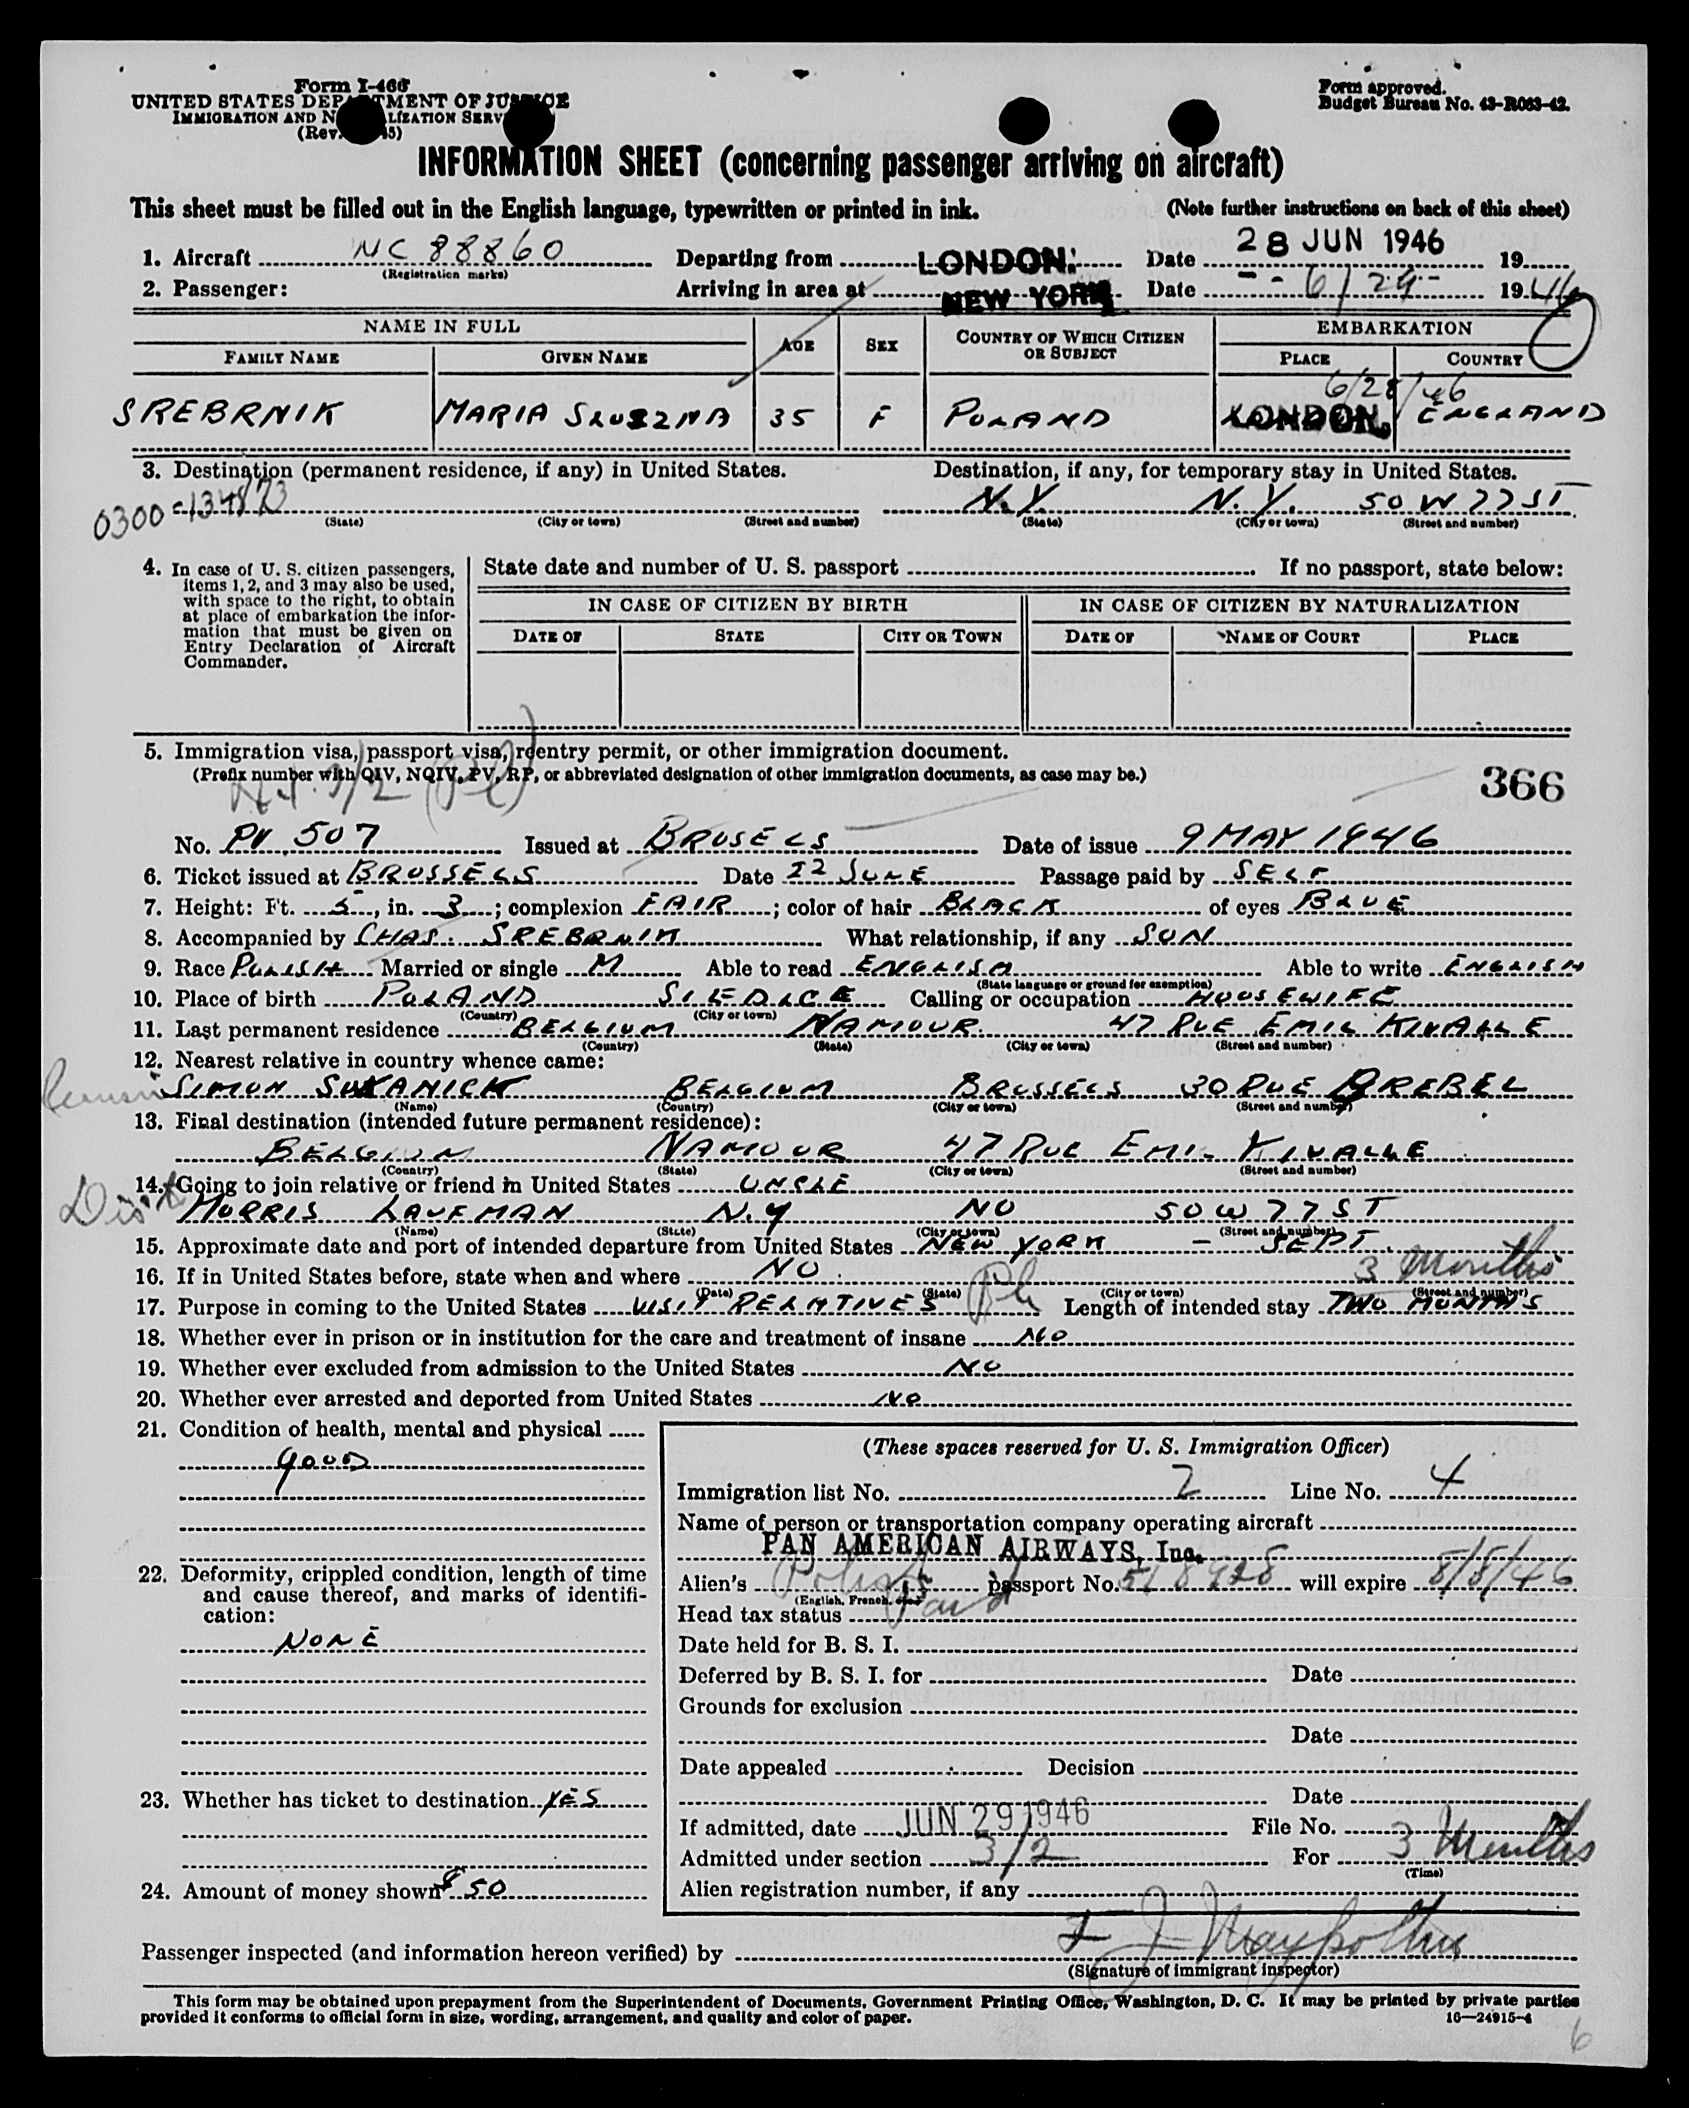 Form I-466
UNITED STATES DEPARTMENT OF JUSTICE
IMMIGRATION AND NATURALIZATION SERVICE
(Rev. 45)
Form approved.
Budget Bureau No. 43-R063-42.
INFORMATION SHEET (concerning passenger arriving on aircraft)
This sheet must be filled out in the English language, typewritten or printed in ink. (Note further instructions on back of this sheet)
1. Aircraft NC 88860 Departing from LONDON. Date 28 JUN 1946 19
(Registration marks)
2. Passenger: Arriving in area at NEW YORK Date 6/29 1946
NAME IN FULL AGE SEX COUNTRY OF WHICH CITIZEN OR SUBJECT EMBARKATION
FAMILY NAME GIVEN NAME PLACE COUNTRY
6/28/46
SREBRNIK MARIA 35 F POLAND LONDON ENGLAND
3. Destination (permanent residence, if any) in United States. Destination, if any, for temporary stay in United States.
0300-134873 N.Y. N.Y. 50 W 77 ST
(State) (City or town) (Street and number) (State) (City or town) (Street and number)
4. In case of U. S. citizen passengers, items 1, 2, and 3 may also be used, with space to the right, to obtain at place of embarkation the information that must be given on Entry Declaration of Aircraft Commander.
State date and number of U. S. passport If no passport, state below:
IN CASE OF CITIZEN BY BIRTH IN CASE OF CITIZEN BY NATURALIZATION
DATE OF STATE CITY OR TOWN DATE OF NAME OF COURT PLACE
5. Immigration visa, passport visa, reentry permit, or other immigration document.
(Prefix number with QIV, NQIV, PV, RP, or abbreviated designation of other immigration documents, as case may be.)
3/2 366
No. PV 507 Issued at BRUSELS Date of issue 9 MAY 1946
6. Ticket issued at BRUSSELS Date 22 JUNE Passage paid by SELF
7. Height: Ft. 5, in. 3; complexion FAIR; color of hair BLACK of eyes BLUE
8. Accompanied by CHAS. SREBRNIK What relationship, if any SON
9. Race POLISH Married or single M Able to read ENGLISH Able to write ENGLISH
(State language or ground for exemption)
10. Place of birth POLAND SIEDLCE Calling or occupation HOUSEWIFE
(Country) (City or town)
11. Last permanent residence BELGIUM NAMOUR 47 RUE EMIL KIVALLE
(Country) (State) (City or town) (Street and number)
12. Nearest relative in country whence came:
SIMON BELGIUM BRUSSELS 30 RUE GREBEL
(Name) (Country) (City or town) (Street and number)
13. Final destination (intended future permanent residence):
BELGIUM NAMOUR 47 RUE EMIL KIVALLE
(Country) (State) (City or town) (Street and number)
14. Going to join relative or friend in United States UNCLE
MORRIS KAUFMAN N.Y NO 50 W 77 ST
(Name) (State) (City or town) (Street and number)
15. Approximate date and port of intended departure from United States NEW YORK - SEPT.
16. If in United States before, state when and where NO 3 Months
(Date) (State) (City or town) (Street and number)
17. Purpose in coming to the United States VISIT RELATIVES Length of intended stay TWO MONTHS
18. Whether ever in prison or in institution for the care and treatment of insane NO
19. Whether ever excluded from admission to the United States NO
20. Whether ever arrested and deported from United States NO
21. Condition of health, mental and physical
GOOD
22. Deformity, crippled condition, length of time and cause thereof, and marks of identification:
NONE
23. Whether has ticket to destination YES
24. Amount of money shown $50
(These spaces reserved for U. S. Immigration Officer)
Immigration list No. 2 Line No. 4
Name of person or transportation company operating aircraft
PAN AMERICAN AIRWAYS, Inc.
Alien's Polish passport No. 518928 will expire 8/8/46
(English, French, etc.)
Head tax status Paid
Date held for B. S. I.
Deferred by B. S. I. for Date
Grounds for exclusion
Date
Date appealed Decision
Date
If admitted, date JUN 29 1946 File No.
Admitted under section 3/2 For 3 Months
(Time)
Alien registration number, if any
Passenger inspected (and information hereon verified) by
(Signature of immigrant inspector)
This form may be obtained upon prepayment from the Superintendent of Documents, Government Printing Office, Washington, D. C. It may be printed by private parties
provided it conforms to official form in size, wording, arrangement, and quality and color of paper. 16—24915-4
6